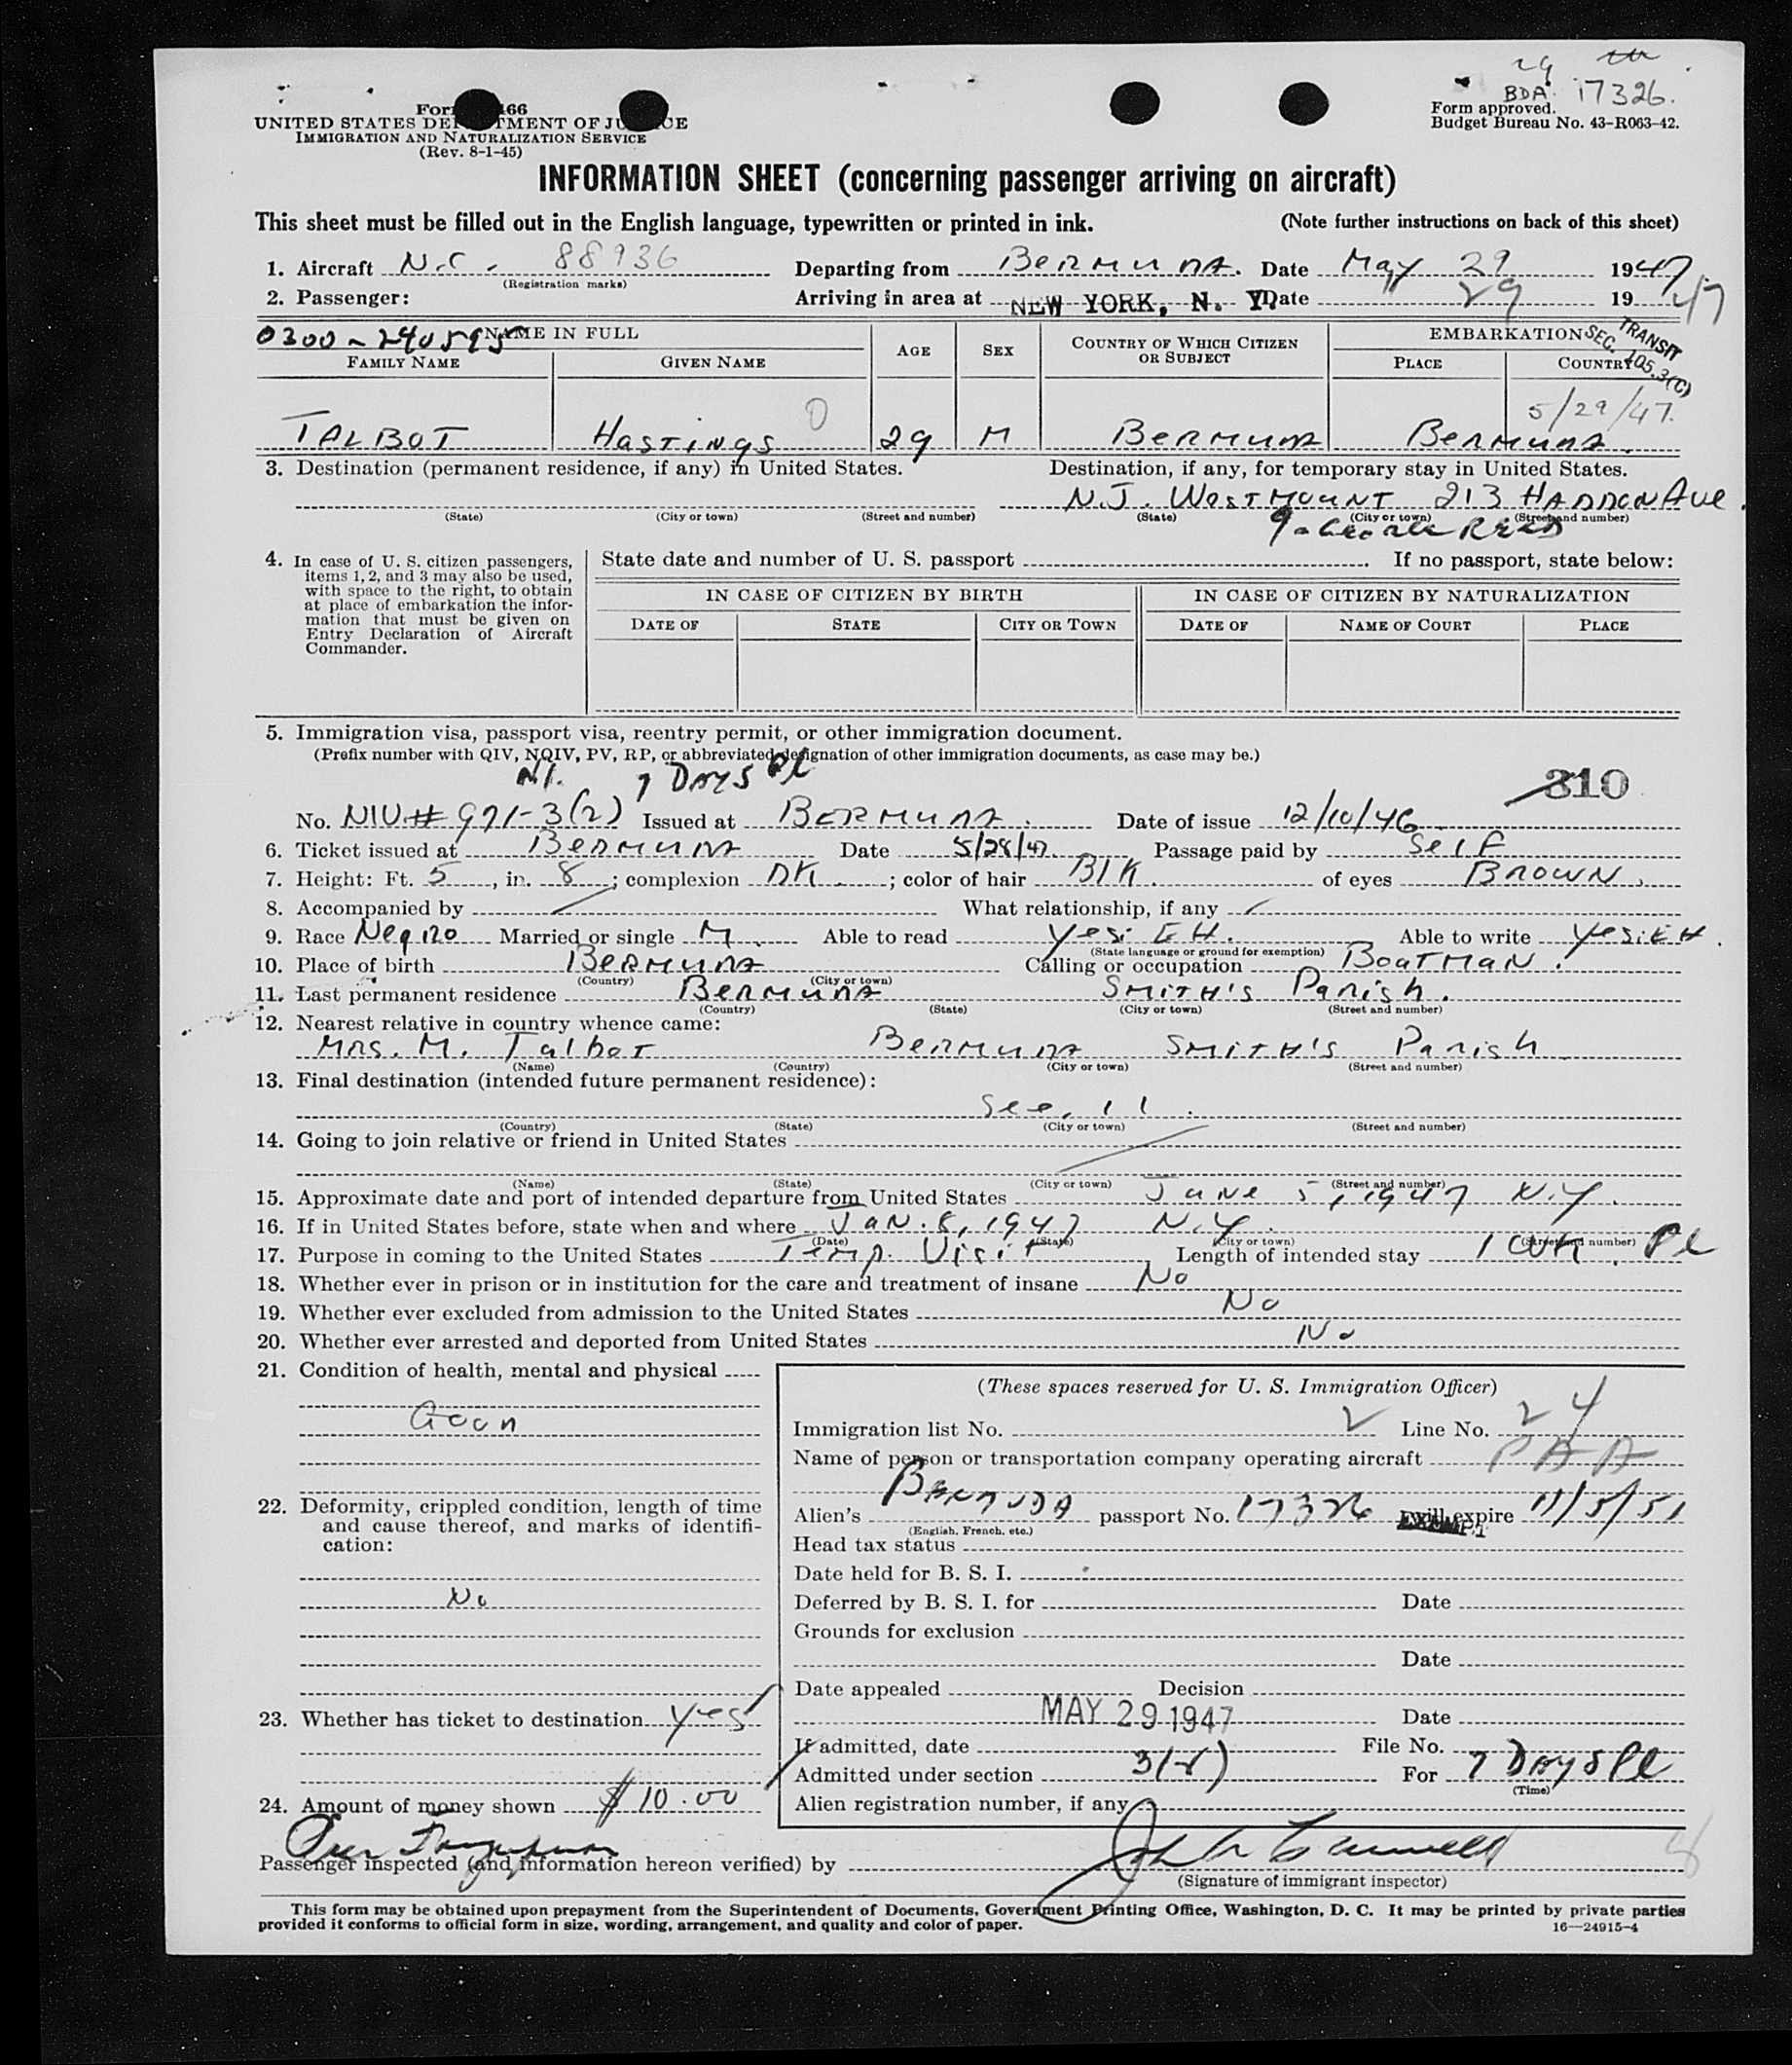 BDA 17326.
Form approved.
Budget Bureau No. 43-R063-42.
UNITED STATES DEPARTMENT OF JUSTICE
IMMIGRATION AND NATURALIZATION SERVICE
(Rev. 8-1-45)
INFORMATION SHEET (concerning passenger arriving on aircraft)
This sheet must be filled out in the English language, typewritten or printed in ink. (Note further instructions on back of this sheet)
1. Aircraft N.C. 88936 Departing from BERMUDA. Date May 29 1947
(Registration marks)
2. Passenger: Arriving in area at NEW YORK, N. Y. Date 29 1947
0300-240595 NAME IN FULL AGE SEX COUNTRY OF WHICH CITIZEN OR SUBJECT EMBARKATION
TRANSIT SEC. 105.3(C)
FAMILY NAME GIVEN NAME PLACE COUNTRY
5/29/47.
TALBOT HASTINGS 29 M BERMUDA BERMUDA
3. Destination (permanent residence, if any) in United States. Destination, if any, for temporary stay in United States.
N.J. WESTMOUNT 213 HADDON Ave.
(State) (City or town) (Street and number) (State) (City or town) (Street and number)
4. In case of U. S. citizen passengers, items 1, 2, and 3 may also be used, with space to the right, to obtain at place of embarkation the information that must be given on Entry Declaration of Aircraft Commander.
State date and number of U. S. passport If no passport, state below:
IN CASE OF CITIZEN BY BIRTH IN CASE OF CITIZEN BY NATURALIZATION
DATE OF STATE CITY OR TOWN DATE OF NAME OF COURT PLACE
5. Immigration visa, passport visa, reentry permit, or other immigration document.
(Prefix number with QIV, NQIV, PV, RP, or abbreviated designation of other immigration documents, as case may be.)
7 DAYS Pl
310
No. NIV# 971-3(2) Issued at BERMUDA. Date of issue 12/10/46
6. Ticket issued at BERMUDA Date 5/28/47 Passage paid by Self
7. Height: Ft. 5, in. 8; complexion DK.; color of hair BlK. of eyes BROWN.
8. Accompanied by What relationship, if any
9. Race Negro Married or single M. Able to read Yes: EH. Able to write Yes: EH.
(State language or ground for exemption)
10. Place of birth BERMUDA Calling or occupation BOATMAN.
(Country) (City or town)
11. Last permanent residence BERMUDA SMITH'S Parish.
(Country) (State) (City or town) (Street and number)
12. Nearest relative in country whence came:
MRS. M. Talbot BERMUDA SMITH'S Parish
(Name) (Country) (City or town) (Street and number)
13. Final destination (intended future permanent residence):
See, 11.
(Country) (State) (City or town) (Street and number)
14. Going to join relative or friend in United States
(Name) (State) (City or town) (Street and number)
15. Approximate date and port of intended departure from United States June 5, 1947 N.Y.
16. If in United States before, state when and where JAN. 8, 1947 N.Y.
(Date) (State) (City or town) (Street and number)
17. Purpose in coming to the United States Temp. Visit Length of intended stay 1 WK. Pl
18. Whether ever in prison or in institution for the care and treatment of insane No
19. Whether ever excluded from admission to the United States No
20. Whether ever arrested and deported from United States No
21. Condition of health, mental and physical
Good
22. Deformity, crippled condition, length of time and cause thereof, and marks of identification:
No
23. Whether has ticket to destination Yes
24. Amount of money shown $10.00
(These spaces reserved for U. S. Immigration Officer)
Immigration list No. 2 Line No. 24
Name of person or transportation company operating aircraft PAA
Alien's BERMUDA passport No. 17326 will expire 11/5/51
(English, French, etc.)
EXEMPT
Head tax status
Date held for B. S. I.
Deferred by B. S. I. for Date
Grounds for exclusion
Date
Date appealed Decision
MAY 29 1947 Date
If admitted, date File No.
Admitted under section 3(2) For 7 DAYS Pl
(Time)
Alien registration number, if any
Passenger inspected (and information hereon verified) by
(Signature of immigrant inspector)
This form may be obtained upon prepayment from the Superintendent of Documents, Government Printing Office, Washington, D. C. It may be printed by private parties
provided it conforms to official form in size, wording, arrangement, and quality and color of paper. 16—24915-4